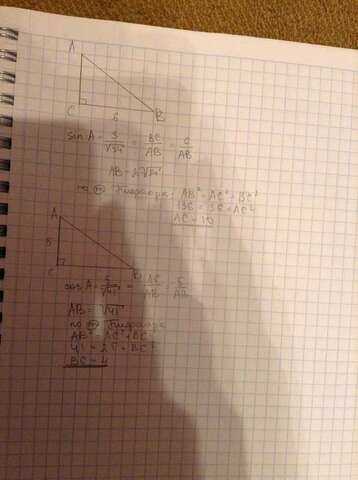 A
C
6
B
sin A = 3/√34 = BC/AB = 6/AB
AB = 2√34
по Пифагора: AB² = AC² + BC²
136 = 36 + AC²
AC = 10
A
5
C
B
cos A = 5/√41 = AC/AB = 5/AB
AB = √41
по Пифагора
AB² = AC² + BC²
41 = 25 + BC²
BC = 4